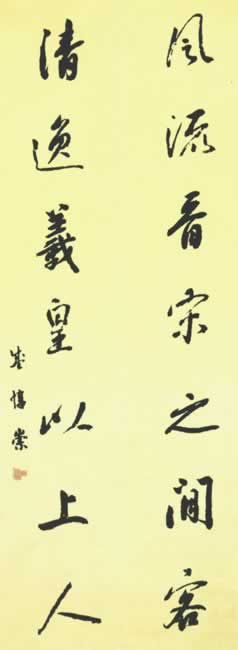 風流晉宋之間客
清逸羲皇以上人
盛惇崇